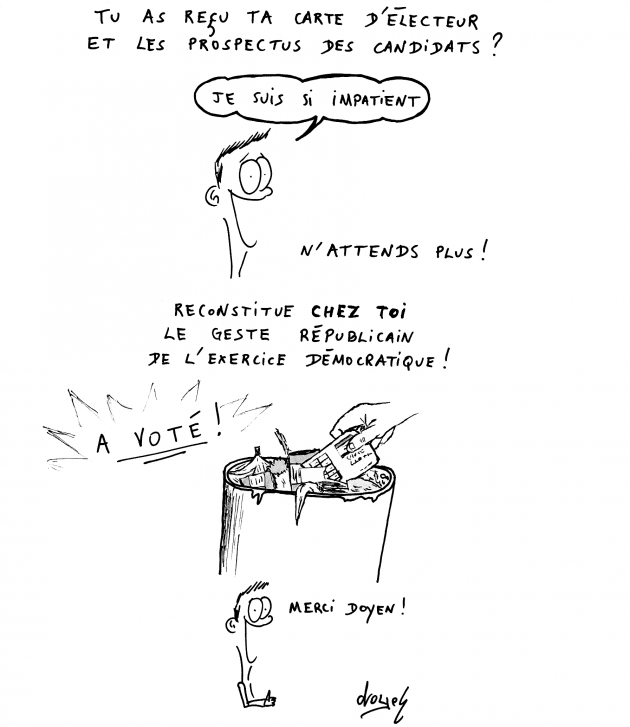 TU AS REÇU TA CARTE D'ÉLECTEUR
ET LES PROSPECTUS DES CANDIDATS ?
JE SUIS SI IMPATIENT
N'ATTENDS PLUS !
RECONSTITUE CHEZ TOI
LE GESTE RÉPUBLICAIN
DE L'EXERCICE DÉMOCRATIQUE !
A VOTÉ !
MERCI DOYEN !